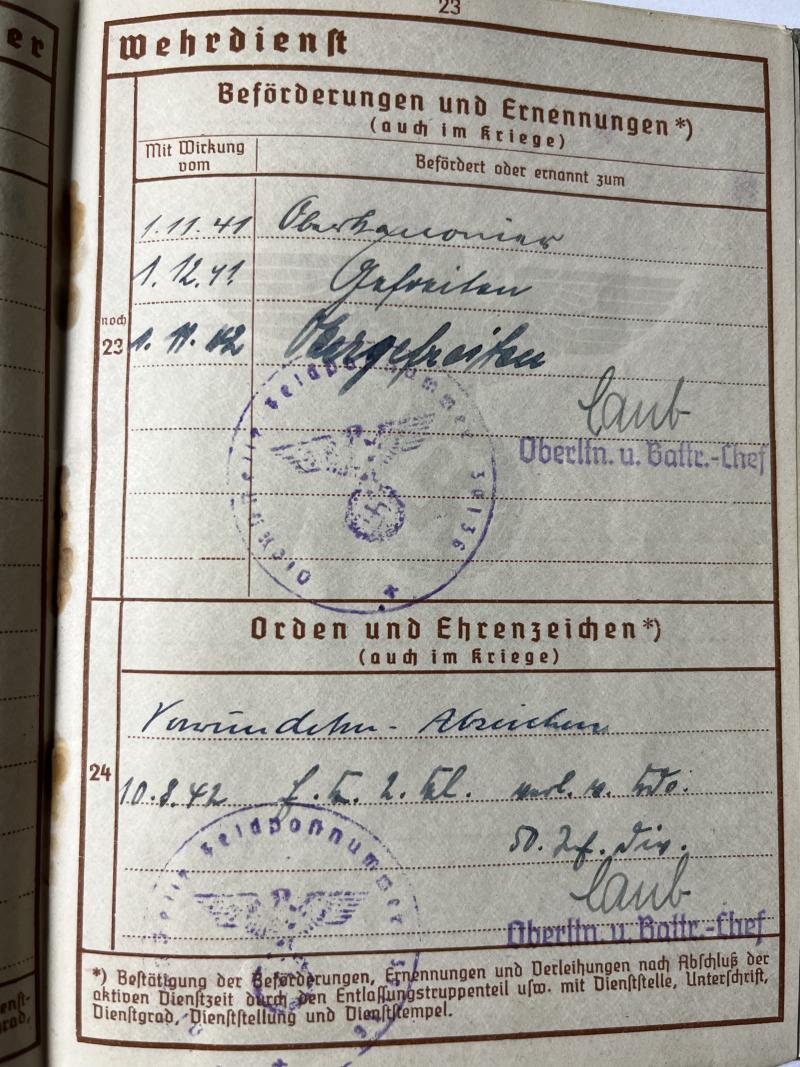 23
er
Wehrdienst
Beförderungen und Ernennungen*)
(auch im Kriege)
Mit Wirkung vom
Befördert oder ernannt zum
1.11.41 Oberkanonier
1.12.41 Gefreiten
noch
23
1.11.42 Obergefreiten
Dienststelle Feldpostnummer 36136
Laub
Oberltn. u. Battr.-Chef
Orden und Ehrenzeichen*)
(auch im Kriege)
Verwundeten-Abzeichen
24
10.8.42 E. K. 2. Kl. verl. v. Kdo.
50. Inf. Div.
Feldpostnummer
Laub
Oberltn. u. Battr.-Chef
*) Bestätigung der Beförderungen, Ernennungen und Verleihungen nach Abschluß der
aktiven Dienstzeit durch den Entlassungstruppenteil usw. mit Dienststelle, Unterschrift,
Dienstgrad, Dienststellung und Dienststempel.